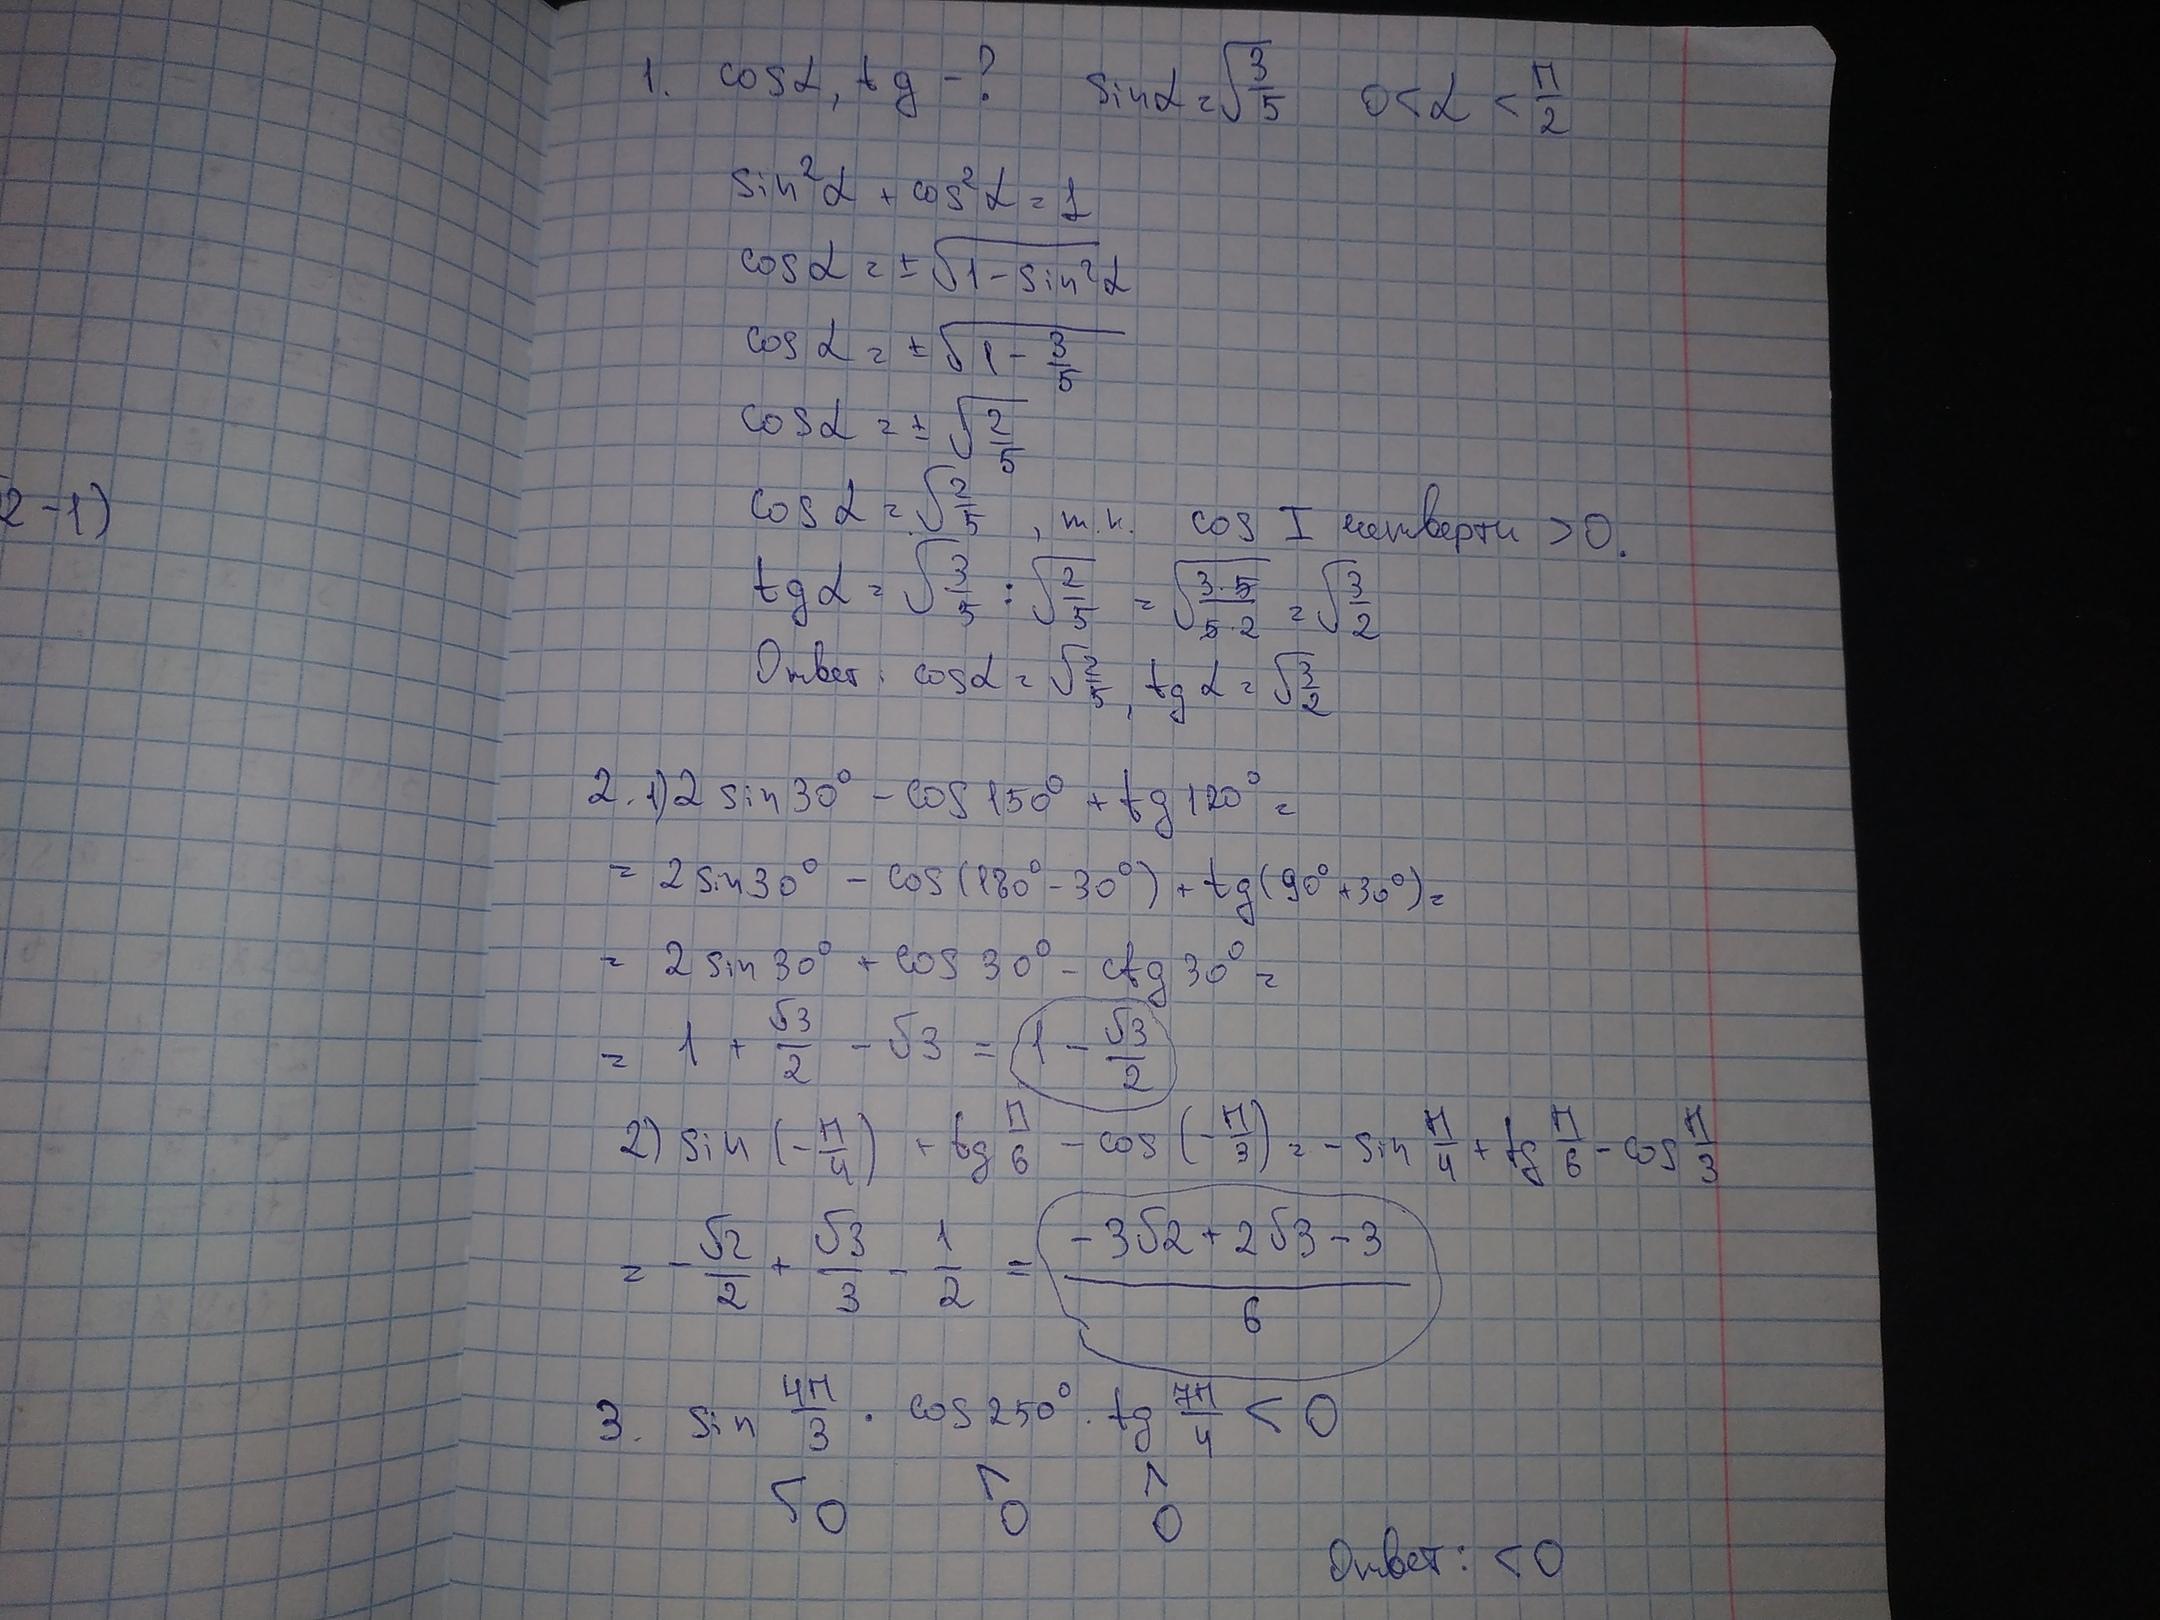 1. cosα, tg - ? sinα = √(3/5) 0 < α < π/2
sin²α + cos²α = 1
cosα = ±√(1 - sin²α)
cosα = ±√(1 - 3/5)
cosα = ±√(2/5)
2-1)
cosα = √(2/5), т.к. cos I четверти > 0.
tgα = √(3/5) : √(2/5) = √(3·5/5·2) = √(3/2)
Ответ: cosα = √(2/5), tgα = √(3/2)
2. 1) 2 sin30° - cos150° + tg120° =
= 2sin30° - cos(180° - 30°) + tg(90° + 30°) =
= 2sin30° + cos30° - ctg30° =
= 1 + √3/2 - √3 = 1 - √3/2
2) sin(-π/4) + tg π/6 - cos(-π/3) = -sin π/4 + tg π/6 - cos π/3
= -√2/2 + √3/3 - 1/2 = (-3√2 + 2√3 - 3)/6
3. sin 4π/3 · cos250° · tg 7π/4 < 0
<0 <0 <0
Ответ: <0